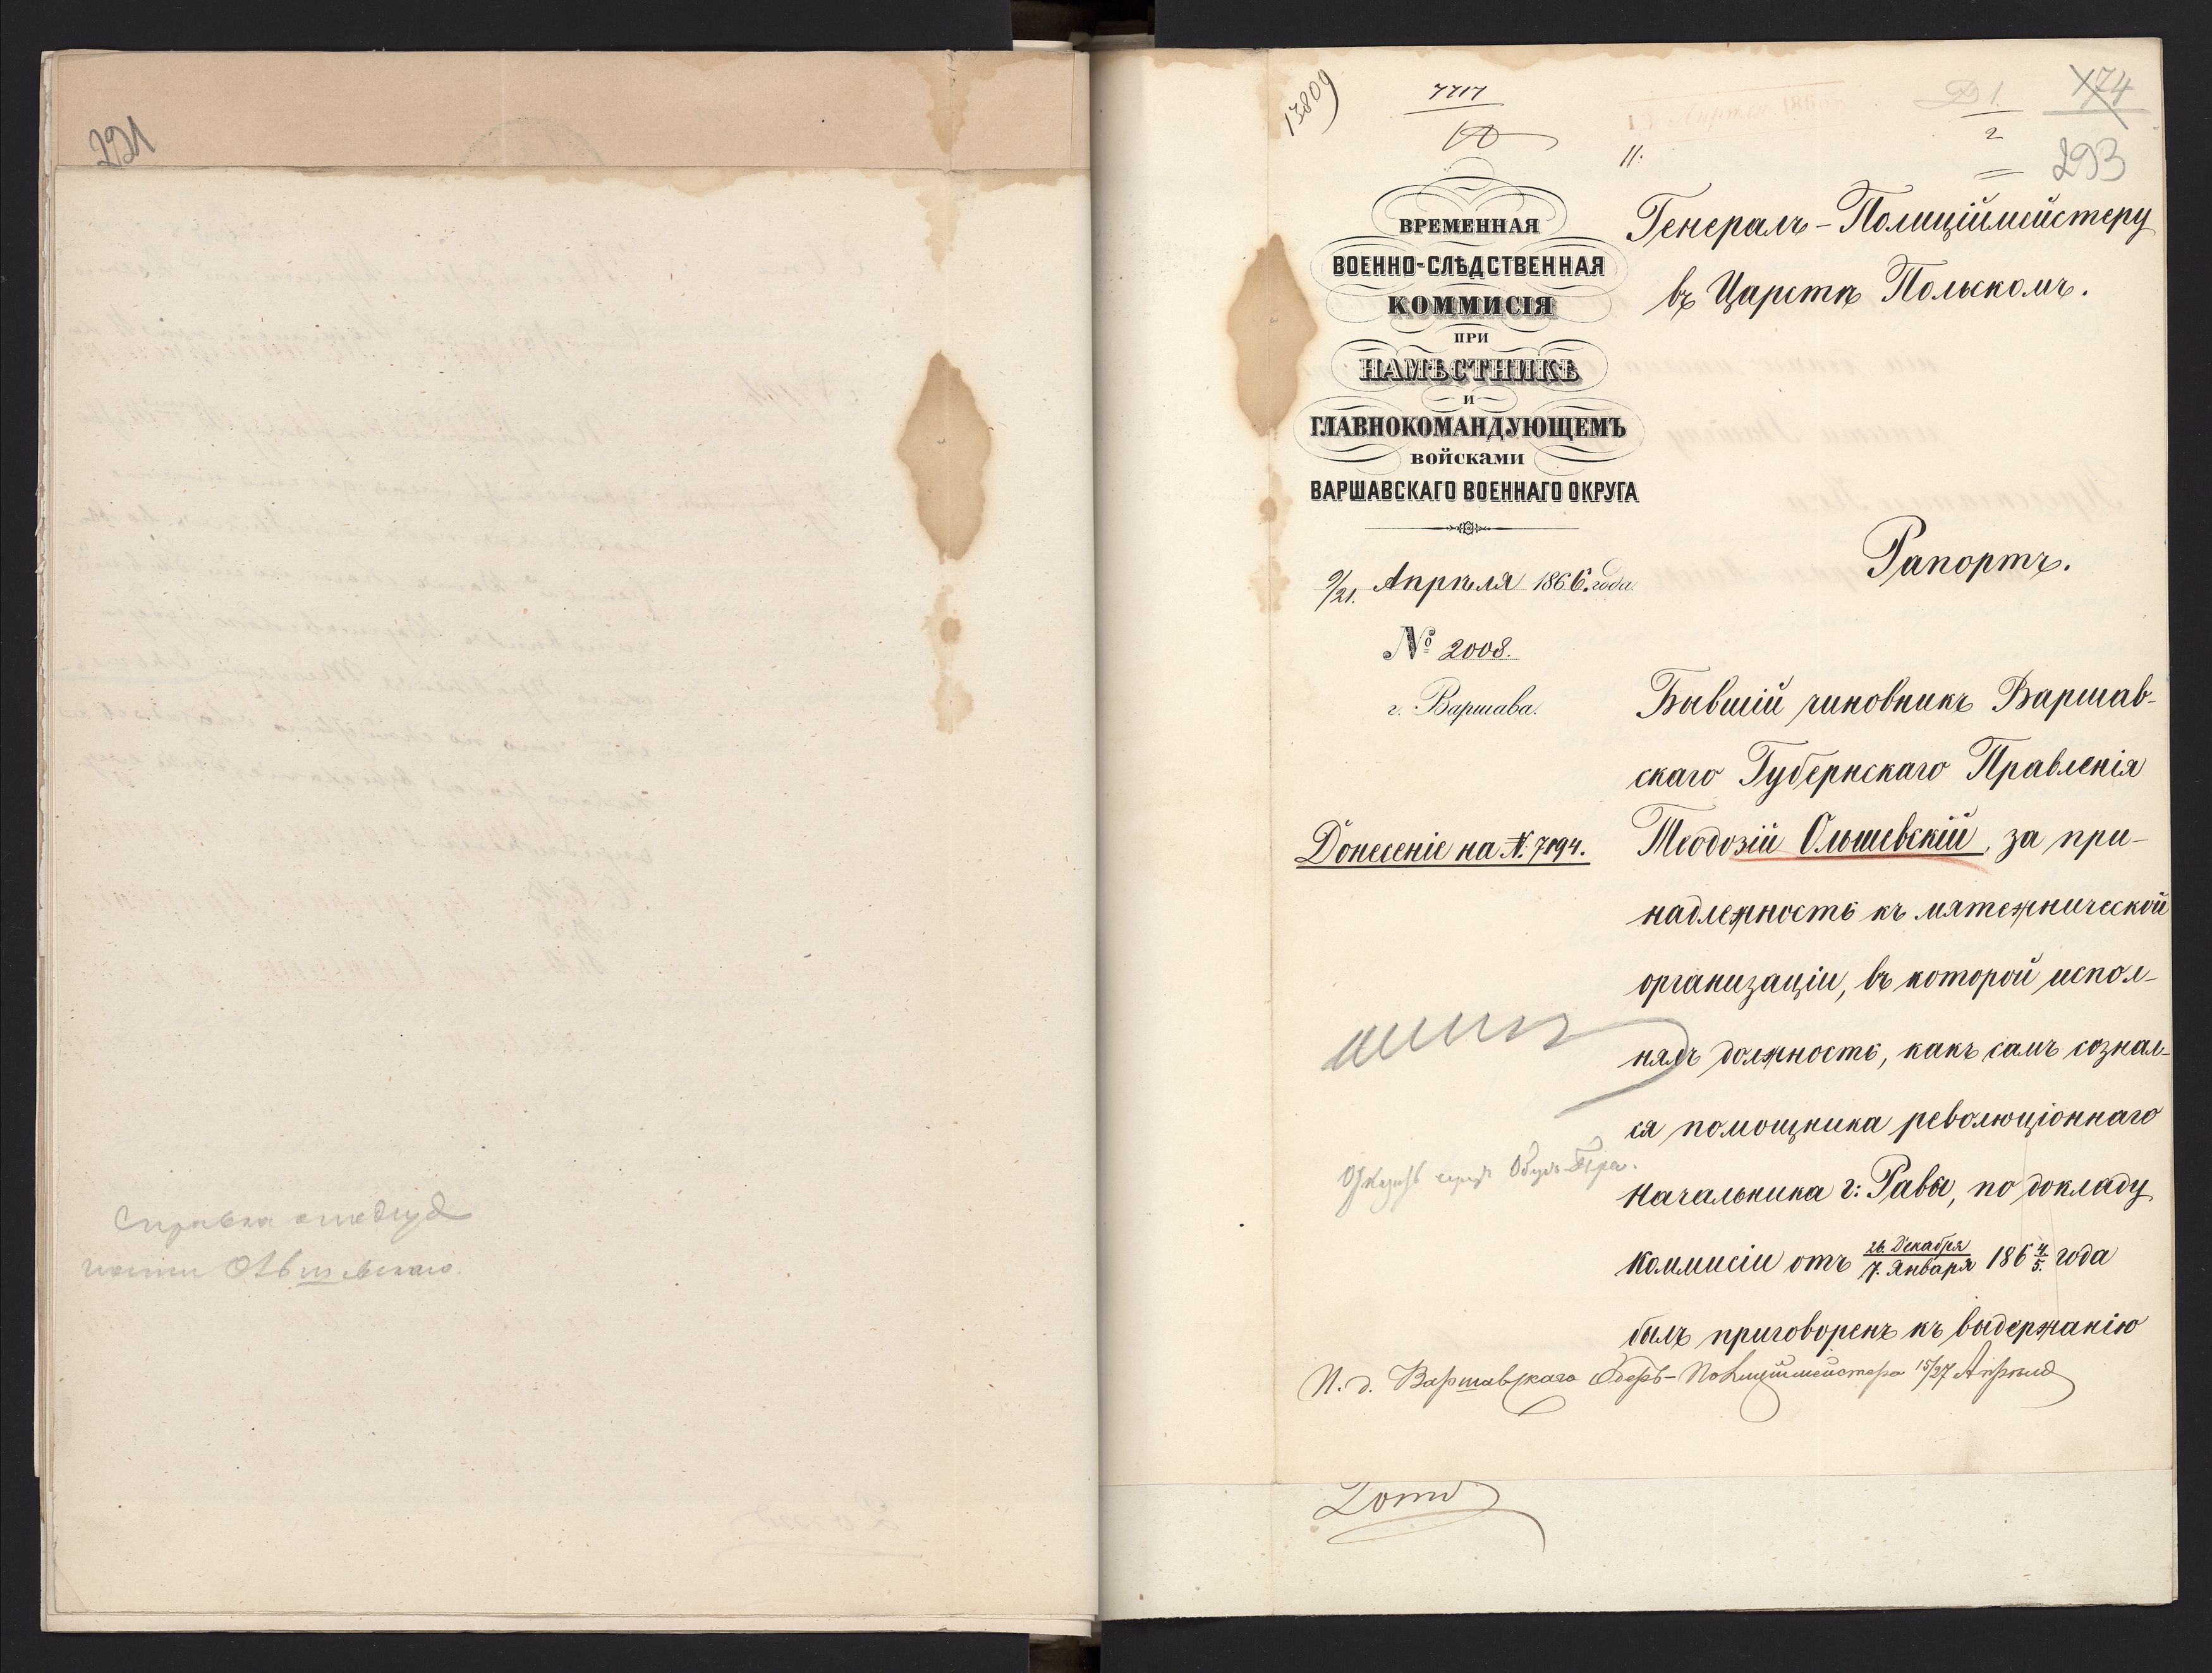 291
Справка
Ольшевскаго.
13809
7717
Д 1.
2
174
293
11:
ВРЕМЕННАЯ
ВОЕННО-СЛѢДСТВЕННАЯ
КОММИСІЯ
ПРИ
НАМѢСТНИКѢ
И
ГЛАВНОКОМАНДУЮЩЕМЪ
ВОЙСКАМИ
ВАРШАВСКАГО ВОЕННАГО ОКРУГА
9/21. Апрѣля 1866. года.
№ 2008.
г. Варшава.
Донесеніе на №. 7194.
Генералъ-Полиціймейстеру
въ Царствѣ Польскомъ.
Рапортъ.
Бывшій чиновникъ Варшав-
скаго Губернскаго Правленія
Теодозій Ольшевскій, за при-
надлежность къ мятежнической
организаціи, въ которой испол-
нялъ должность, какъ самъ сознал-
ся помощника революціоннаго
Начальника г: Равы, по докладу
Коммисіи отъ 26. Декабря/7. Января 1864/5. года
былъ приговоренъ къ выдержанію
И. д. Варшавскаго Оберъ-Полиціймейстера 15/27 Апрѣля